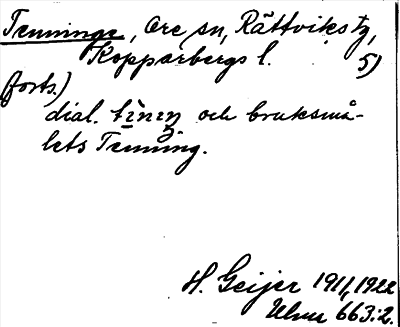 Tenninge, Ore sn, Rättviks tg,
Kopparbergs l. 5)
(forts.)
dial. tìnıŋ och bruksmå-
lets Tenning.
H. Geijer 1911, 1922
Ulma 663:2.